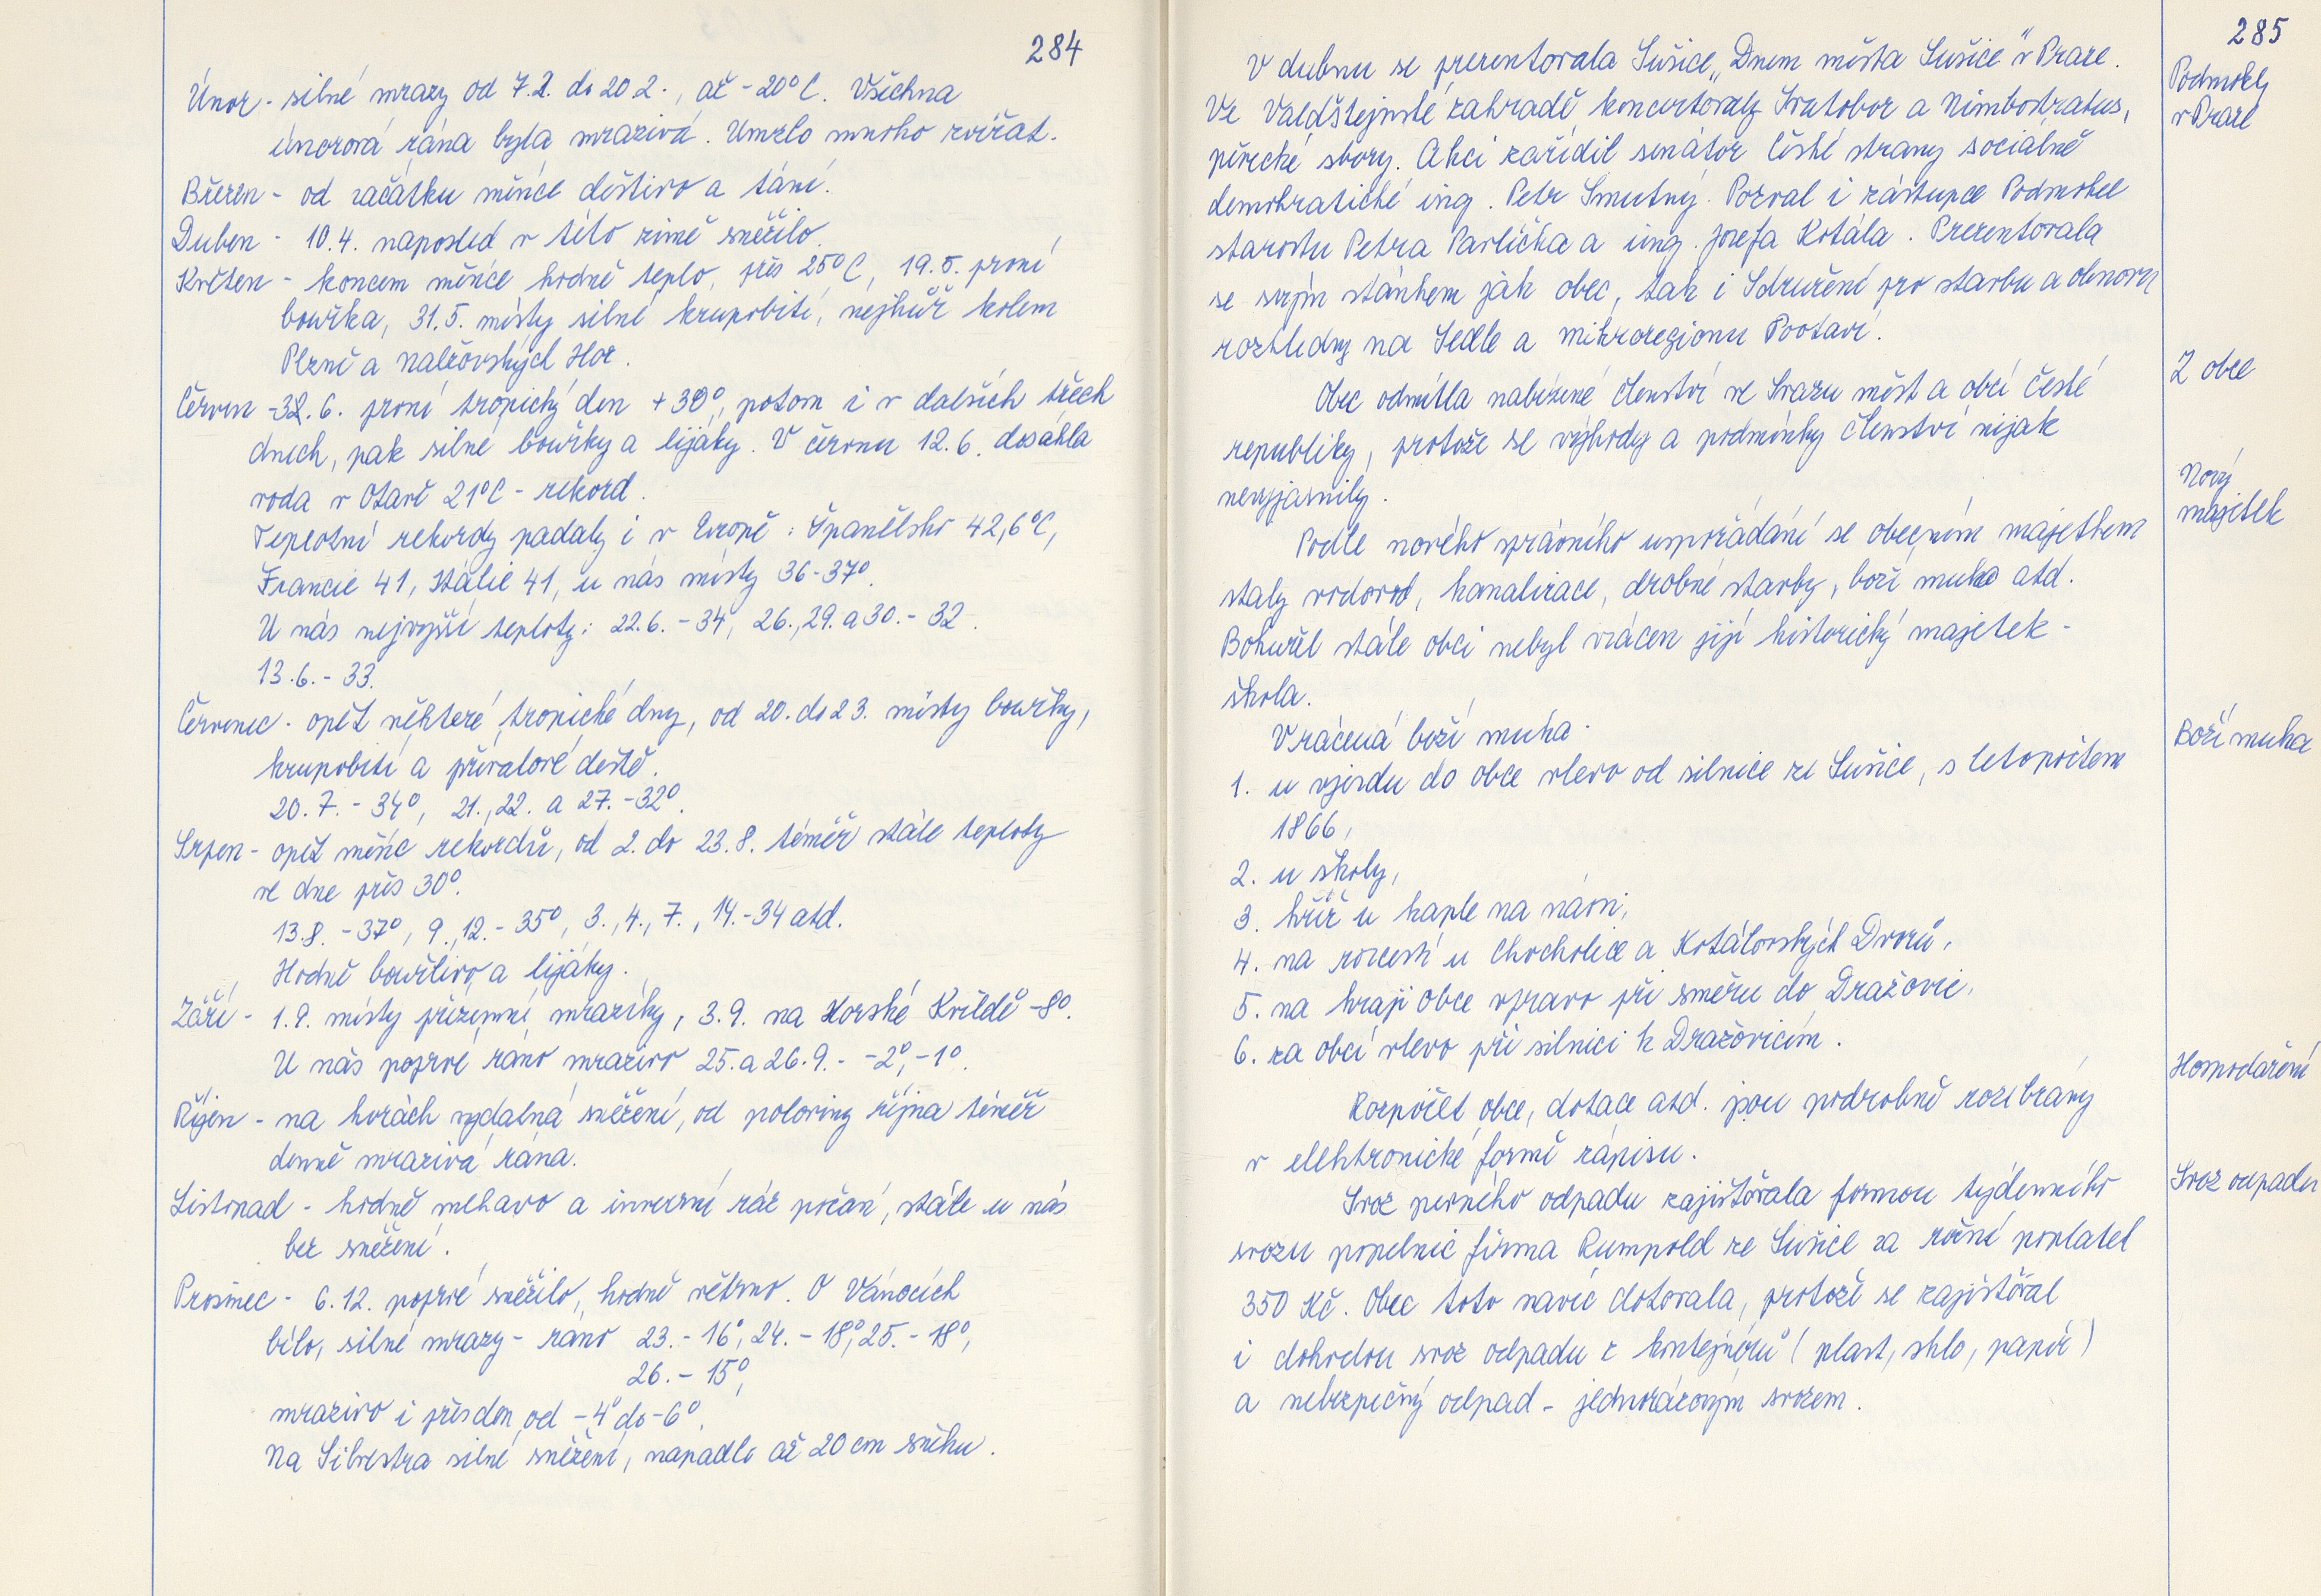 284
Únor - silné mrazy od 7.2. do 20.2., až -20°C. Všechna
únorová rána byla mrazivá. Umrzlo mnoho zvířat.
Březen - od začátku měsíce deštivo a tání.
Duben - 10.4. naposled v této zimě sněžilo.
Květen - koncem měsíce hodně teplo, přes 25°C, 19.5. první
bouřka, 31.5. místy silné krupobití, nejhůř kolem
Plzně a Nalžovských Hor.
Červen - 6. první tropický den +30°, potom i v dalších třech
dnech, pak silné bouřky a lijáky. V červnu 12.6. dosáhla
voda v Otavě 21°C - rekord.
Teplotní rekordy padaly i v Evropě: Španělsko 42,6°C,
Francie 41, Itálie 41, u nás místy 36-37°.
U nás nejvyšší teploty: 22.6. - 34, 26., 29. a 30. - 32.
13.6. - 33.
Červenec - opět některé tropické dny, od 20. do 23. místy bouřky,
krupobití a přívalové deště.
20.7. - 34°, 21., 22. a 27. - 32°.
Srpen - opět měsíc rekordů, od 2. do 23.8. téměř stále teploty
ve dne přes 30°.
13.8. - 37°, 9., 12. - 35°, 3., 4., 7., 14. - 34 atd.
Hodně bouřlivo a lijáky.
Září - 1.9. místy přízemní mrazíky, 3.9. na Horské Kvildě -8°.
U nás poprvé ráno mrazivo 25. a 26.9. - -2°, -1°.
Říjen - na horách vydatná sněžení, od poloviny října téměř
denně mrazivá rána.
Listopad - hodně mlhavo a inverzní ráz počasí, stále u nás
bez sněžení.
Prosinec - 6.12. poprvé sněžilo, hodně větrno. O Vánocích
bílo, silné mrazy - ráno 23. - 16°, 24. - 18°, 25. - 18°,
26. - 15°,
mrazivo i přes den od -4° do -6°.
Na Silvestra silné sněžení, napadlo až 20 cm sněhu.
285
V dubnu se prezentovala Sušice „Dnem města Sušice" v Praze.
Podmokly
v Praze
Ve Valdštejnské zahradě koncertovaly Svatobor a Nimbostratus,
pěvecké sbory. Akci zařídil senátor České strany sociálně
demokratické ing. Petr Smutný. Pozval i zástupce Podmokel
starostu Petra Pavlíčka a ing. Josefa Kotála. Prezentovala
se svým stánkem jak obec, tak i Sdružení pro stavbu a obnovu
rozhledny na Sedle a Mikroregionu Pootaví.
Z obce
Obec odmítla nabízené členství ve Svazu měst a obcí České
republiky, protože se výhody a podmínky členství nijak
nevyjasnily.
Nový
majetek
Podle nového správního uspořádání se obecním majetkem
staly vodovod, kanalizace, drobné stavby, boží muka atd.
Bohužel stále obci nebyl vrácen její historický majetek -
škola.
Boží muka
Vrácená boží muka -
1. u vjezdu do obce vlevo od silnice ze Sušice, s letopočtem
1866,
2. u školy,
3. kříž u kaple na návsi,
4. na rozcestí u Chocholice a Kotálovských Dvorů,
5. na kraji obce vpravo při směru do Dražovic,
6. za obcí vlevo při silnici k Dražovicím.
Hospodaření
Rozpočet obce, dotace atd. jsou podrobně rozebrány
v elektronické formě zápisu.
Svoz odpadu
Svoz pevného odpadu zajišťovala formou týdenního
svozu popelnic firma Rumpold ze Sušice za roční poplatek
350 Kč. Obec toto navíc dotovala, protože se zajišťoval
i dohodou svoz odpadu z kontejnérů (plast, sklo, papír)
a nebezpečný odpad - jednorázovým svozem.